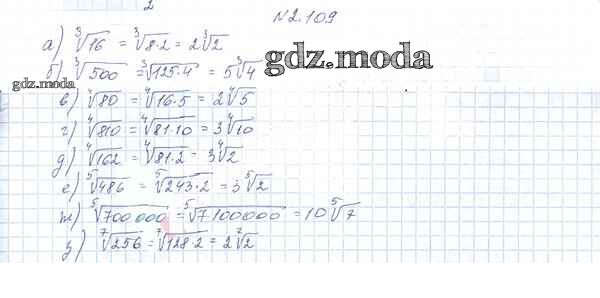 2
№2.109
а) ∛16 = ∛8·2 = 2∛2
gdz.moda
б) ∛500 = ∛125·4 = 5∛4
gdz.moda
в) ∜80 = ∜16·5 = 2∜5
г) ∜810 = ∜81·10 = 3∜10
д) ∜162 = ∜81·2 = 3∜2
е) ⁵√486 = ⁵√243·2 = 3⁵√2
ж) ⁵√700 000 = ⁵√7·100000 = 10⁵√7
з) ⁷√256 = ⁷√128·2 = 2⁷√2